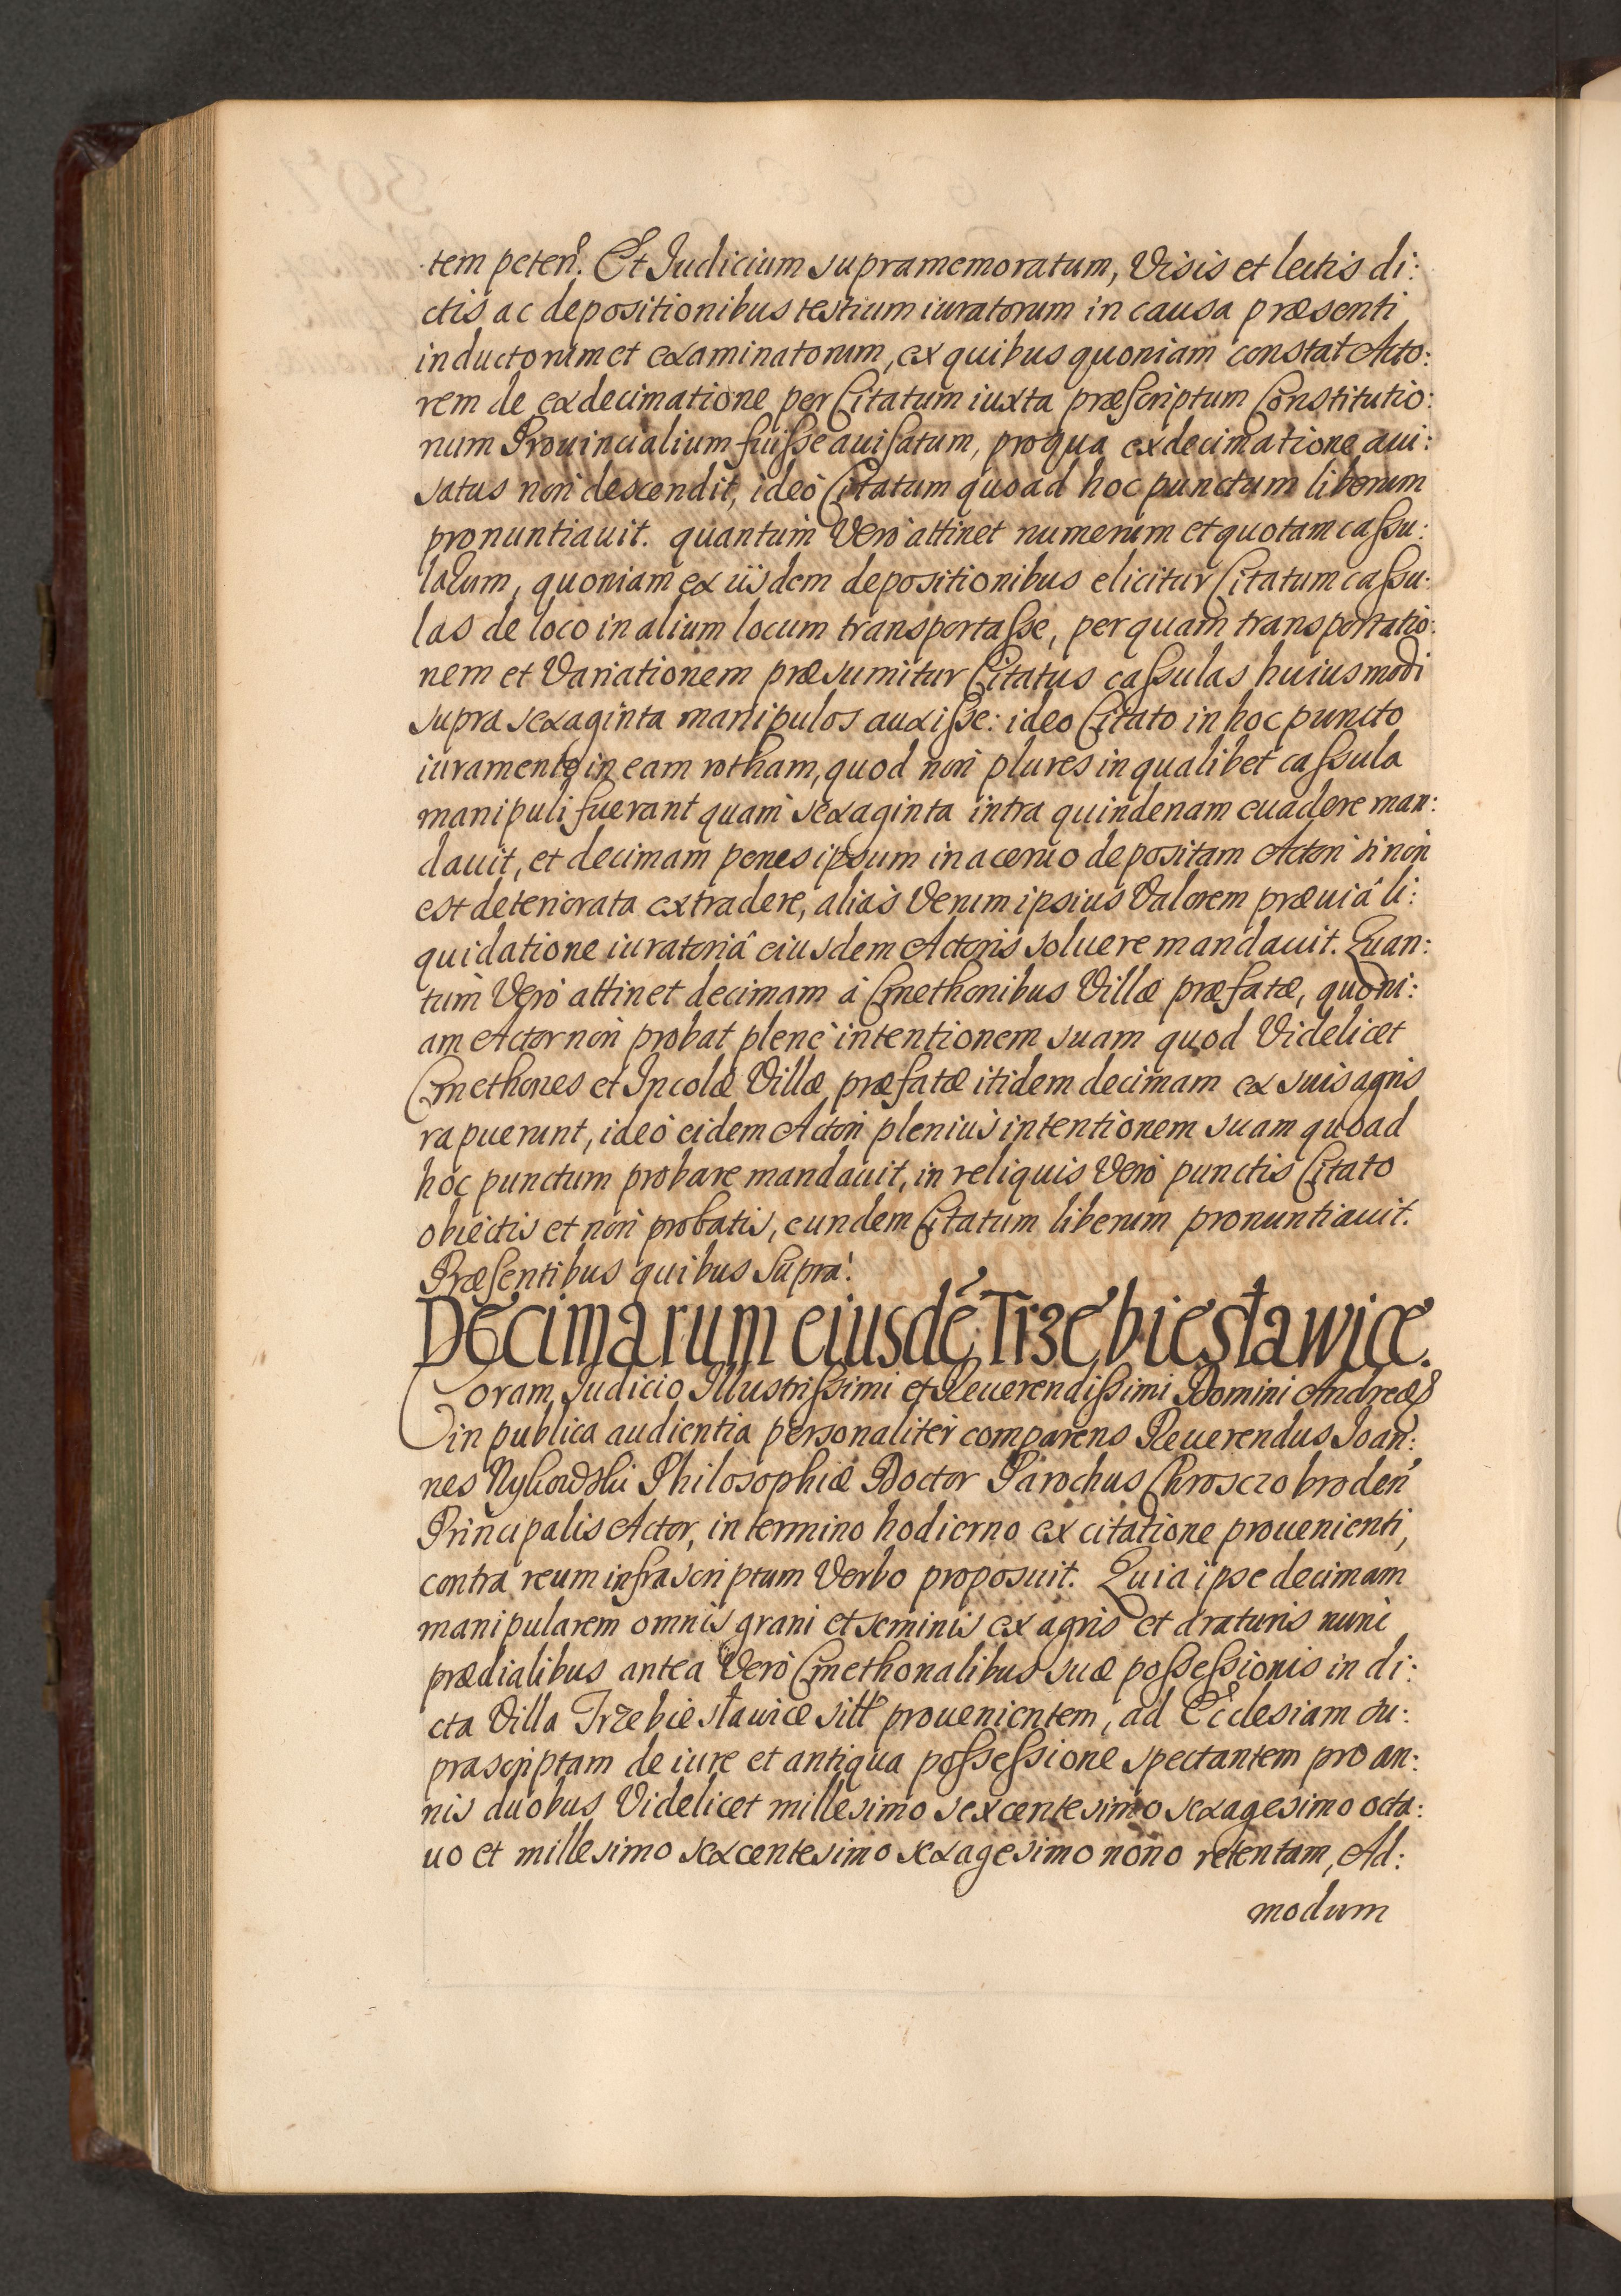 tem peteñ. Et Judicium supramemoratum, Visis et lectis di:
ctis ac depositionibus testium iuratorum in causa præsenti
inductorum et examinatorum, ex quibus quoniam constat Acto:
rem de exdecimatione per Citatum iuxta præscriptum Constitutio:
num Prouincialium fuisse auisatum, pro qua exdecimatione aui:
satus non descendit, ideò Citatum quoad hoc punctum liberum
pronuntiauit. quantum Verò attinet numerum et quotam cassu:
larum, quoniam ex iisdem depositionibus elicitur Citatum cassu:
las de loco in alium locum transportasse, per quam transportatio:
nem et Variationem præsumitur Citatus cassulas huiusmodi
supra sexaginta manipulos auxisse: ideo Citato in hoc puncto
iuramento in eam rotham, quod non plures in qualibet cassula
manipuli fuerant quam sexaginta intra quindenam euadere man:
dauit, et decimam penes ipsum in aceruo depositam Actori si non
est deteriorata extradere, alias Verum ipsius Valorem præuiâ li:
quidatione iuratoriâ eiusdem Actoris soluere mandauit. Quan:
tum Verò attinet decimam à Cmethonibus Villæ præfatæ, quoni:
am Actor non probat plenè intentionem suam quod Videlicet
Cmethones et Incolæ Villæ præfatæ itidem decimam ex suis agris
rapuerunt, ideò eidem Actori plenius intentionem suam quoad
hoc punctum probare mandauit, in reliquis Verò punctis Citato
obiectis et non probatis, eundem Citatum liberum pronuntiauit.
Præsentibus quibus supra.
Decimarum eiusdē Trzebiesławice.
Coram Judicio Illustrissimi et Reuerendissimi Domini Andreæ &
in publica audientia personaliter comparens Reuerendus Joan:
nes Nykowski Philosophiæ Doctor Parochus Chrosczobrodeñ
Principalis Actor, in termino hodierno ex citatione prouenienti,
contra reum infrascriptum Verbo proposuit. Quia ipse decimam
manipularem omnis grani et seminis ex agris et araturis nunc
prædialibus antea Verò Cmethonalibus suæ possessionis in di:
cta Villa Trzebiesławice sitis prouenientem, ad Ecclesiam su:
prascriptam de iure et antiqua possessione spectantem pro an:
nis duobus Videlicet millesimo sexcentesimo sexagesimo octa:
uo et millesimo sexcentesimo sexagesimo nono retentam, Ad:
modum